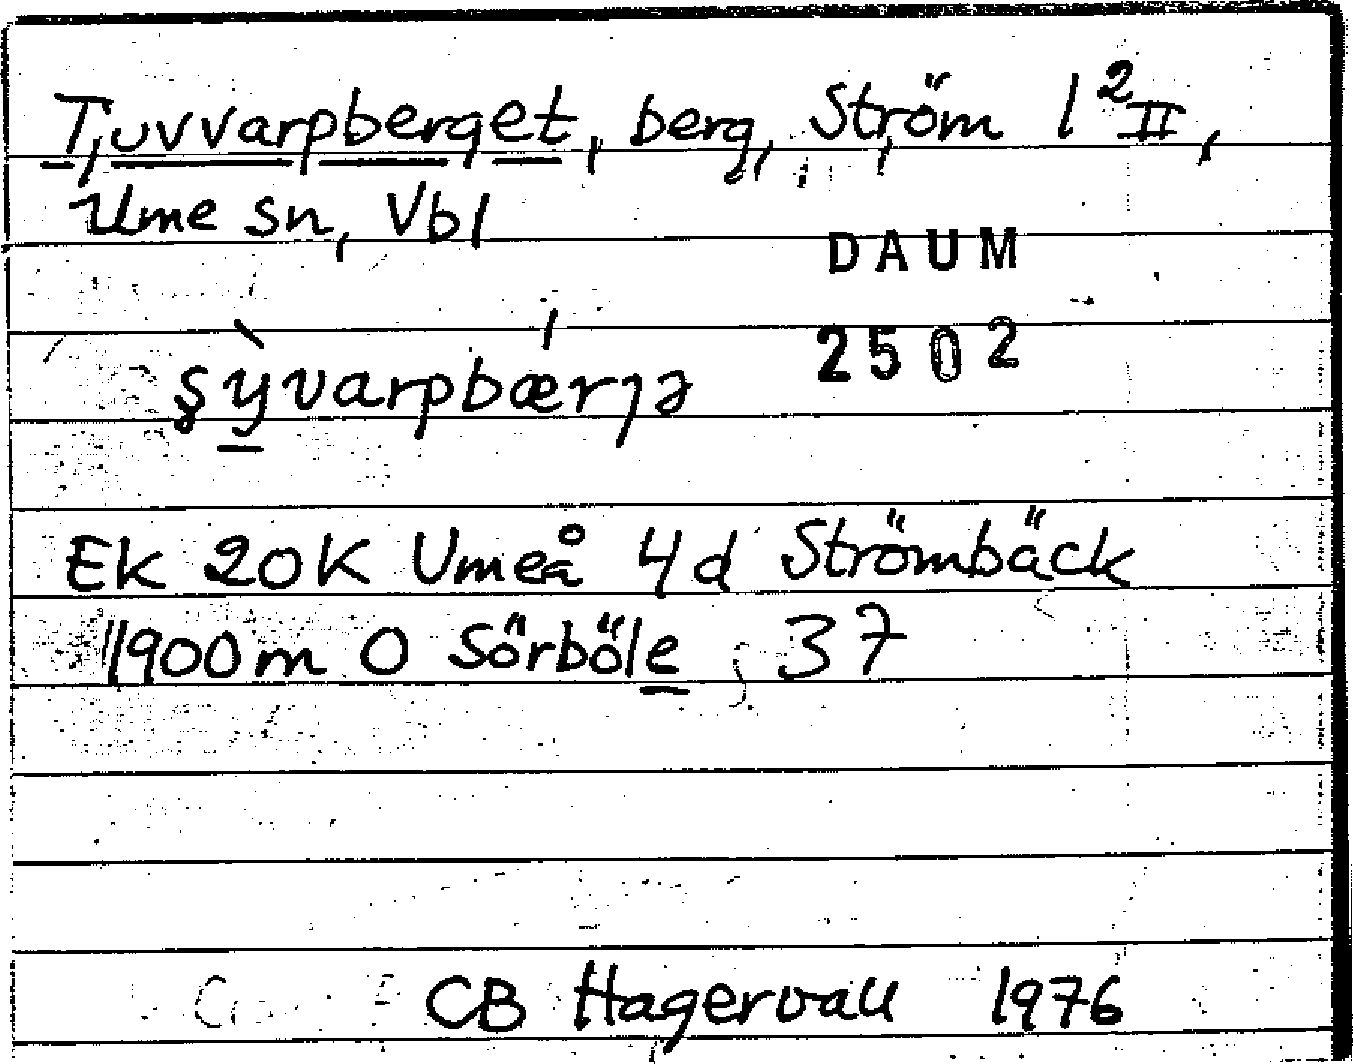 Tjuvvarpberget, berg, Ström 1²II,
Ume sn, Vbl
DAUM
2502
Ek 20K Umeå 4d Strömbäck
1900m O Sörböle, 37
CB Hagervall 1976